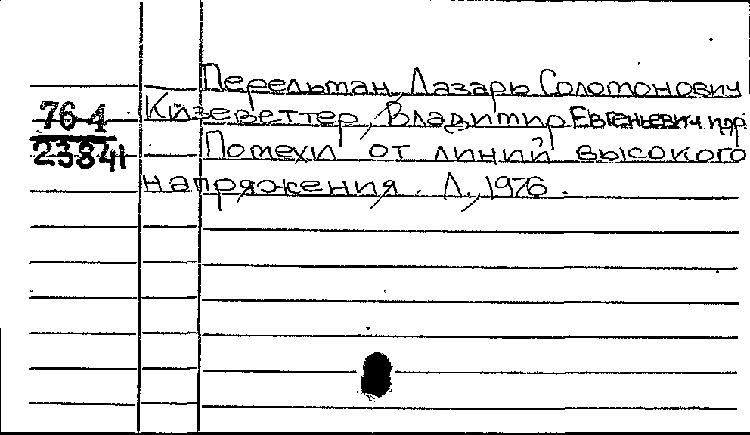 Перельман, Лазарь Соломонович
Кизеветтер, Владимир Евгеньевич и др.
76-4
23841
Помехи от линий высокого
напряжения. Л., 1976.